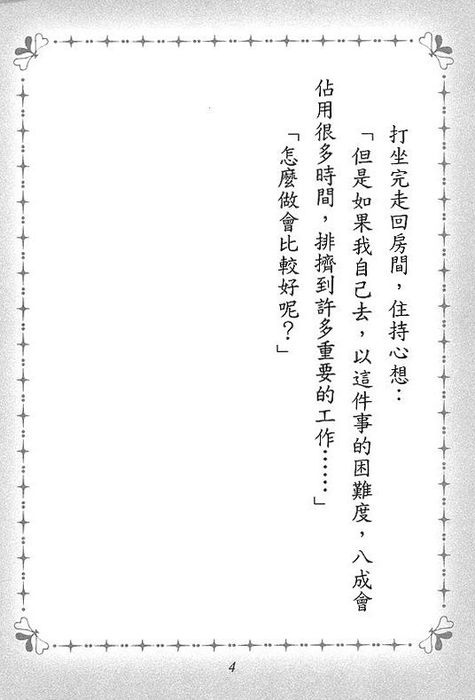 打坐完走回房間，住持心想：
「但是如果我自己去，以這件事的困難度，八成會
佔用很多時間，排擠到許多重要的工作……」
「怎麼做會比較好呢？」
4